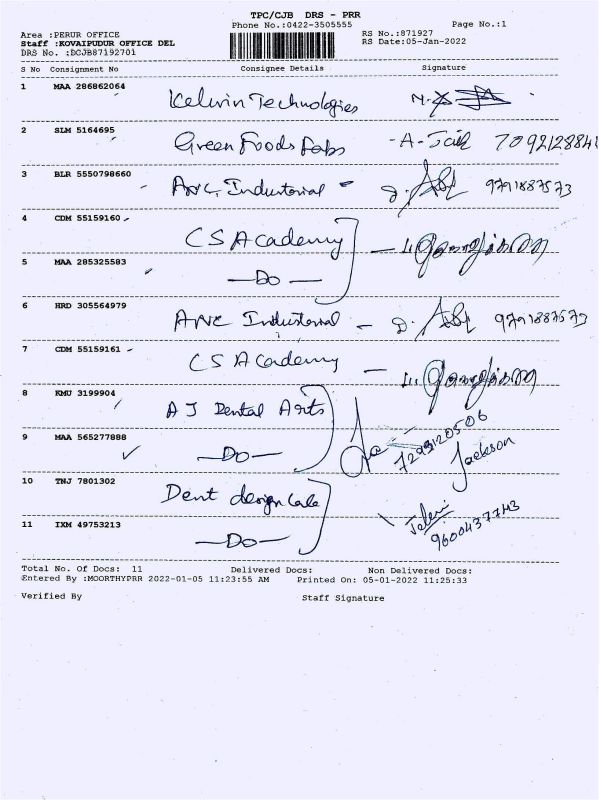 TPC/CJB DRS - PRR
Phone No.:0422-3505555 Page No.:1
Area :PERUR OFFICE RS No.:871927
Staff :KOVAIPUDUR OFFICE DEL RS Date:05-Jan-2022
DRS No. :DCJB87192701
S No Consignment No Consignee Details Signature
1 MAA 286862064 Kelwin Technologies
2 SLM 5164695 Green Foods Labs
3 BLR 5550798660 Industorial 9791887573
4 CDM 55159160 CS Academy
5 MAA 285325583 —Do—
6 HRD 305564979 Industorial 9791887573
7 CDM 55159161 CS Academy
8 KMU 3199904 A J Dental Arts
9 MAA 565277888 —Do— Jackson
10 TNJ 7801302 Dent design
11 IXM 49753213 —Do—
Total No. Of Docs: 11 Delivered Docs: Non Delivered Docs:
Entered By :MOORTHYPRR 2022-01-05 11:23:55 AM Printed On: 05-01-2022 11:25:33
Verified By Staff Signature